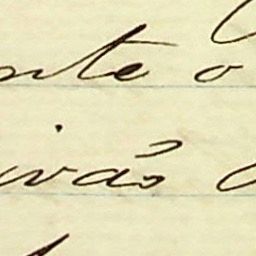 nte o
ivão